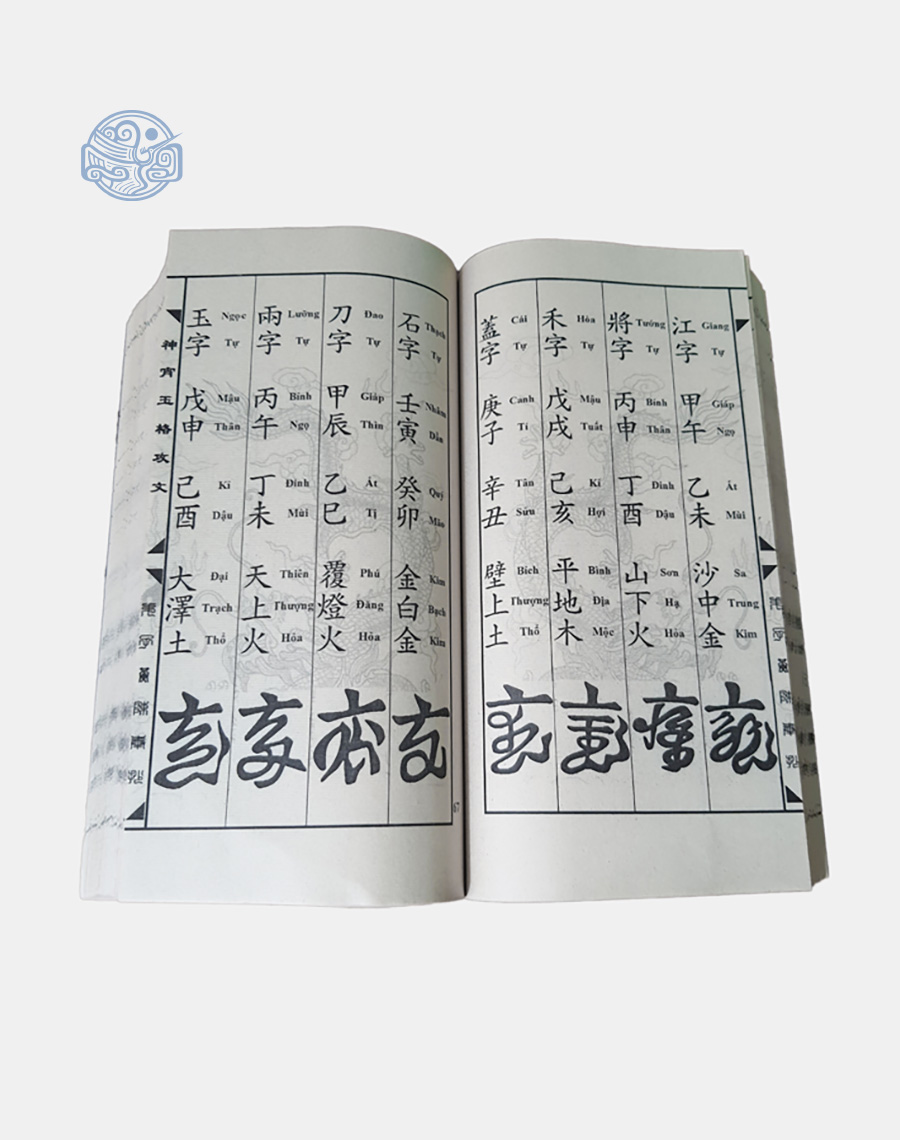 江字 Giang Tự 甲午 Giáp Ngọ 乙未 Ất Mùi 沙中金 Sa Trung Kim
將字 Tướng Tự 丙申 Bính Thân 丁酉 Đinh Dậu 山下火 Sơn Hạ Hỏa
禾字 Hòa Tự 戊戌 Mậu Tuất 己亥 Kỉ Hợi 平地木 Bình Địa Mộc
蓋字 Cái Tự 庚子 Canh Tí 辛丑 Tân Sửu 壁上土 Bích Thượng Thổ
石字 Thạch Tự 壬寅 Nhâm Dần 癸卯 Quý Mão 金白金 Kim Bạch Kim
刀字 Đao Tự 甲辰 Giáp Thìn 乙巳 Ất Tị 覆燈火 Phú Đăng Hỏa
兩字 Lưỡng Tự 丙午 Bính Ngọ 丁未 Đinh Mùi 天上火 Thiên Thượng Hỏa
玉字 Ngọc Tự 戊申 Mậu Thân 己酉 Kỉ Dậu 大澤土 Đại Trạch Thổ
神宵玉格攻文
67